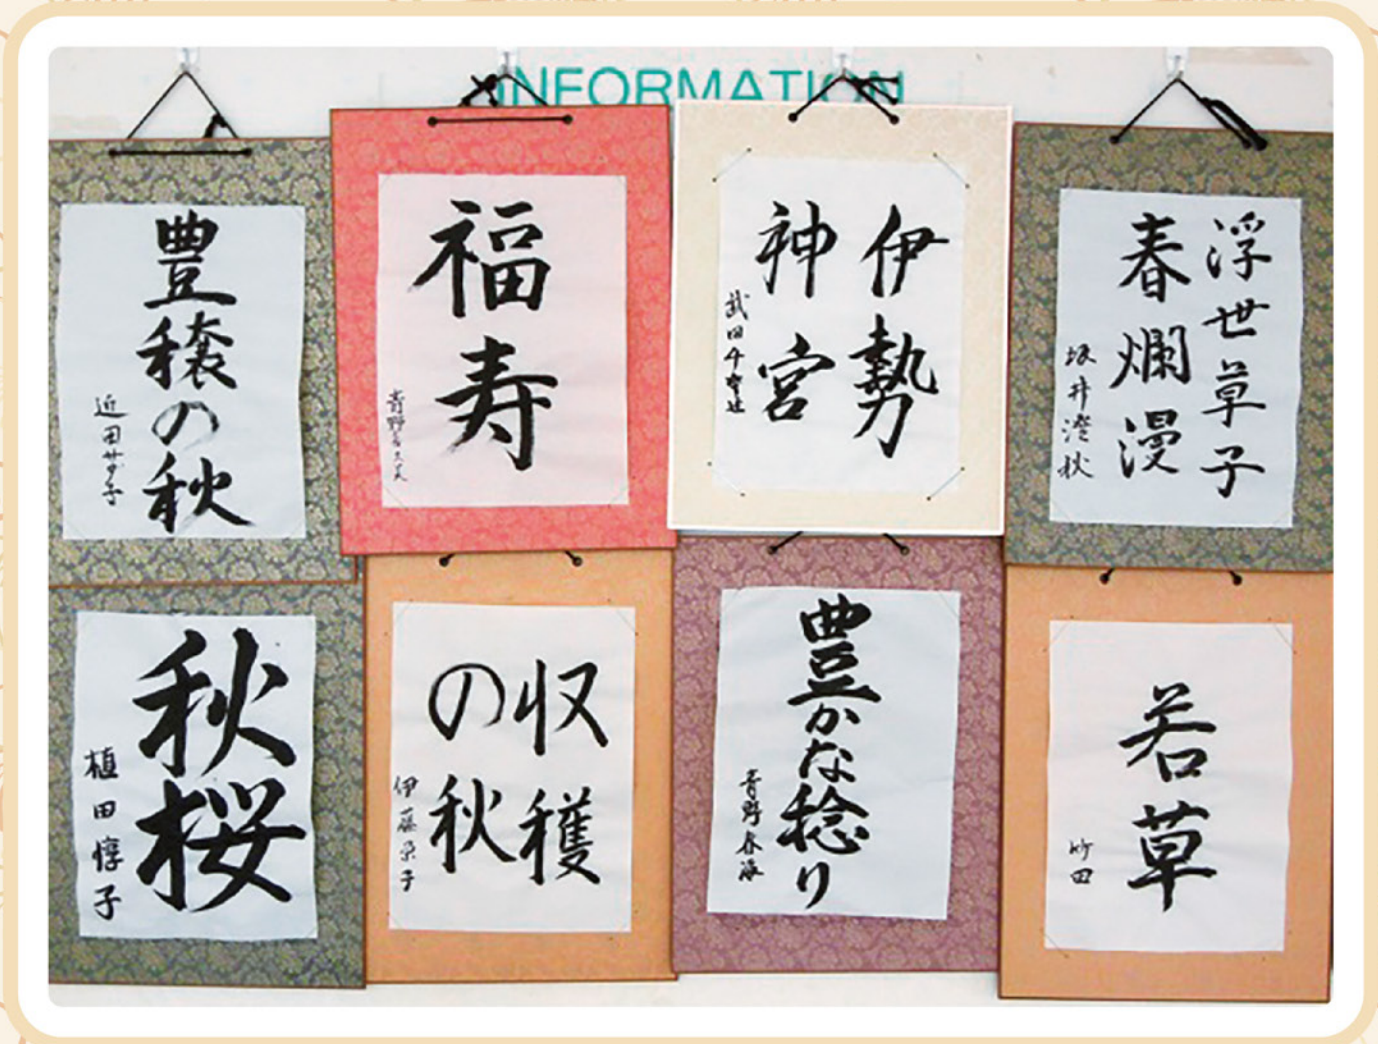 INFORMATION
豊穣の秋
近田サダ子
福寿
伊勢
神宮
浮世草子
春爛漫
坂井澄秋
秋桜
植田惇子
収穫
の秋
豊かな稔り
青野春海
若草
竹田